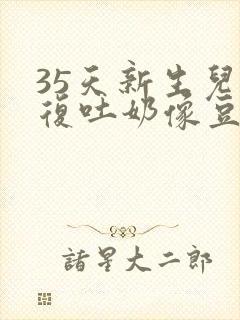 35天新生兒
復吐奶像豆
諸星大二郎